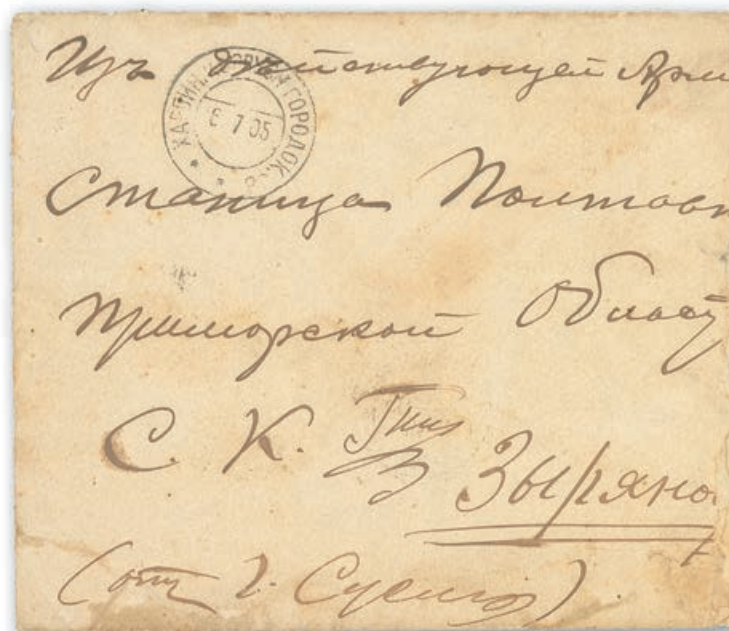 Изъ Действующей Арми
ХАРБИНЪ ГОРОДОК.
6 7 05
Станица Полтавк
Приморской Област
С. К.
Зыряно
(отъ г.